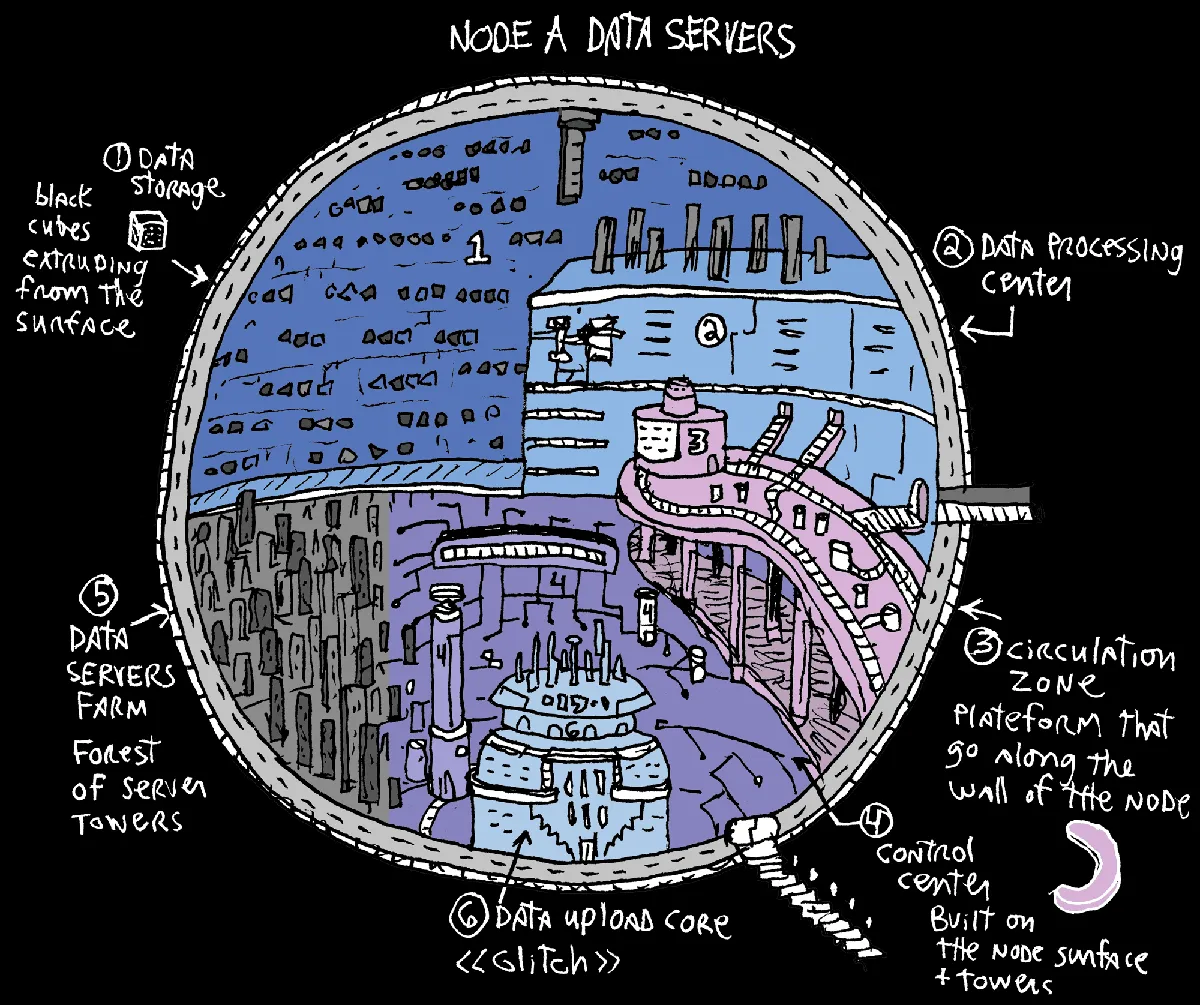 NODE A DATA SERVERS
① DATA
STORAGE
black
cubes
EXTRUDING
from THE
SURFACE
② DATA PROCESSING
CENTER
③ CIRCULATION
ZONE
PLATEFORM THAT
go along THE
WALL of THE NODE
④
CONTROL
CENTER
BUILT ON
THE NODE SURFACE
+ TOWERS
⑤
DATA
SERVERS
FARM
FOREST
OF SERVER
TOWERS
⑥ DATA UPLOAD CORE
<<GLITCH>>
1
2
3
4
4
4
6